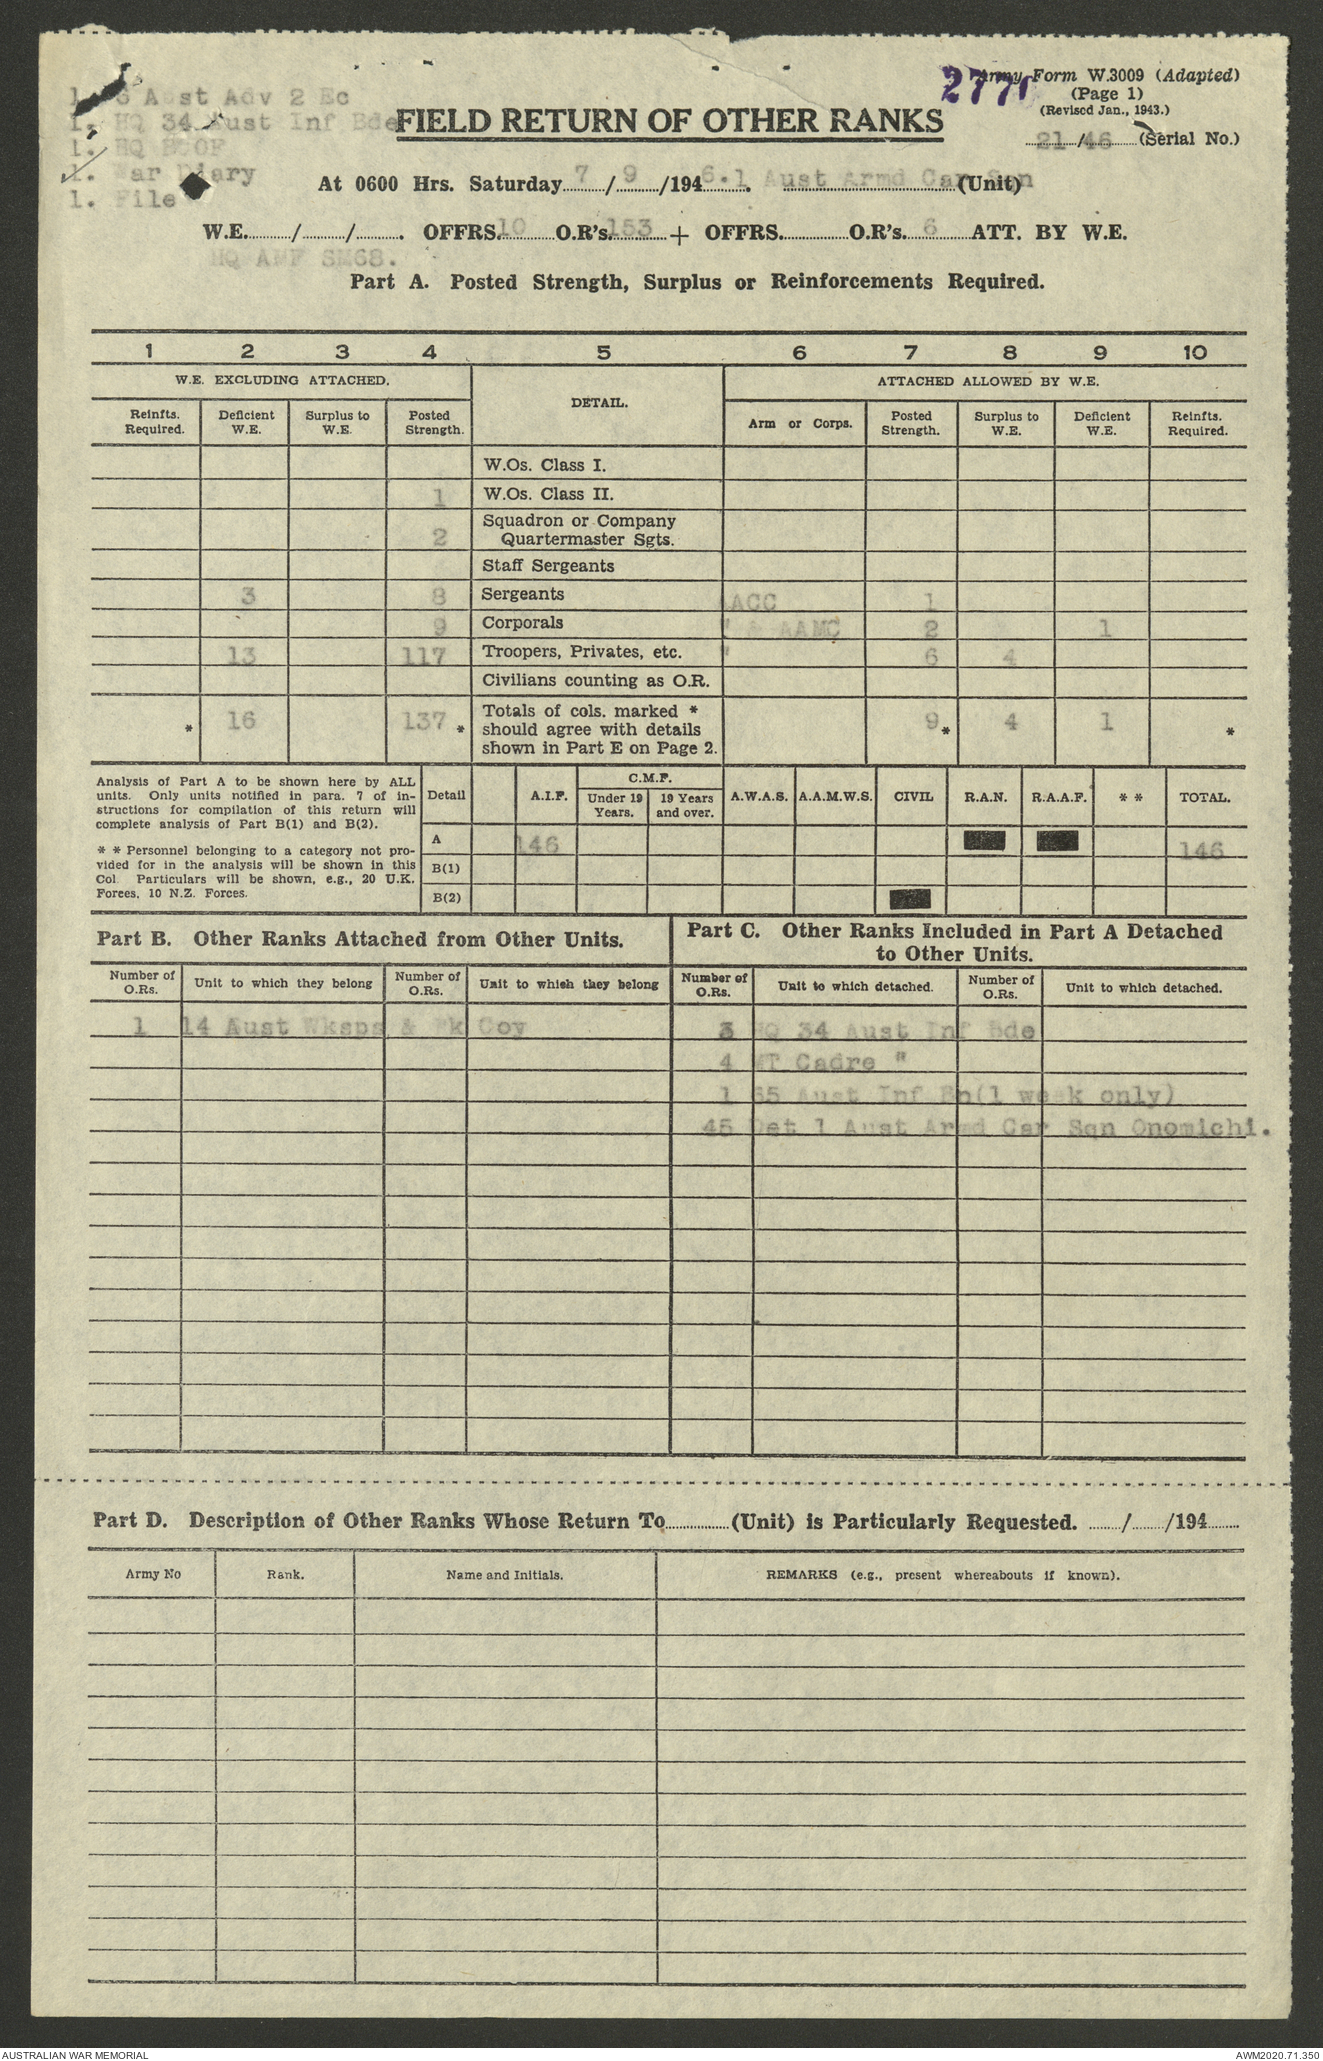 Army Form W.3009 (Adapted)
(Page 1)
(Revised Jan., 1943.)
21/46 (Serial No.)
277
1. 8 Aust Adv 2 Ec
1. HQ 34 Aust Inf Bde
1. HQ BCOF
1. War Diary
1. File
FIELD RETURN OF OTHER RANKS
At 0600 Hrs. Saturday 7 / 9 /1946. 1 Aust Armd Car Sqn (Unit)
W.E. ........./........./.......... OFFRS. 10 O.R's. 153 + OFFRS. ............ O.R's. 6 ATT. BY W.E.
HQ AMF SM68.
Part A. Posted Strength, Surplus or Reinforcements Required.
1 2 3 4 5 6 7 8 9 10
W.E. EXCLUDING ATTACHED. DETAIL. ATTACHED ALLOWED BY W.E.
Reinfts. Required. Deficient W.E. Surplus to W.E. Posted Strength. Arm or Corps. Posted Strength. Surplus to W.E. Deficient W.E. Reinfts. Required.
W.Os. Class I.
1 W.Os. Class II.
2 Squadron or Company Quartermaster Sgts.
Staff Sergeants
3 8 Sergeants AACC 1
9 Corporals " & AAMC 2 1
13 117 Troopers, Privates, etc. " 6 4
Civilians counting as O.R.
* 16 137 * Totals of cols. marked * should agree with details shown in Part E on Page 2. 9* 4 1 *
Analysis of Part A to be shown here by ALL
units. Only units notified in para. 7 of in-
structions for compilation of this return will
complete analysis of Part B(1) and B(2).
* * Personnel belonging to a category not pro-
vided for in the analysis will be shown in this
Col. Particulars will be shown, e.g., 20 U.K.
Forces, 10 N.Z. Forces.
Detail A.I.F. C.M.F. Under 19 Years. 19 Years and over. A.W.A.S. A.A.M.W.S. CIVIL R.A.N. R.A.A.F. * * TOTAL.
A 146 146
B(1)
B(2)
Part B. Other Ranks Attached from Other Units.
Number of O.Rs. Unit to which they belong Number of O.Rs. Unit to which they belong
1 14 Aust Wksps & Pk Coy
Part C. Other Ranks Included in Part A Detached
to Other Units.
Number of O.Rs. Unit to which detached. Number of O.Rs. Unit to which detached.
3 HQ 34 Aust Inf Bde
4 MT Cadre "
1 65 Aust Inf Bn(1 week only)
45 Det 1 Aust Armd Car Sqn Onomichi.
Part D. Description of Other Ranks Whose Return To ............ (Unit) is Particularly Requested. ......../......../194........
Army No Rank. Name and Initials. REMARKS (e.g., present whereabouts if known).
AUSTRALIAN WAR MEMORIAL
AWM2020.71.350